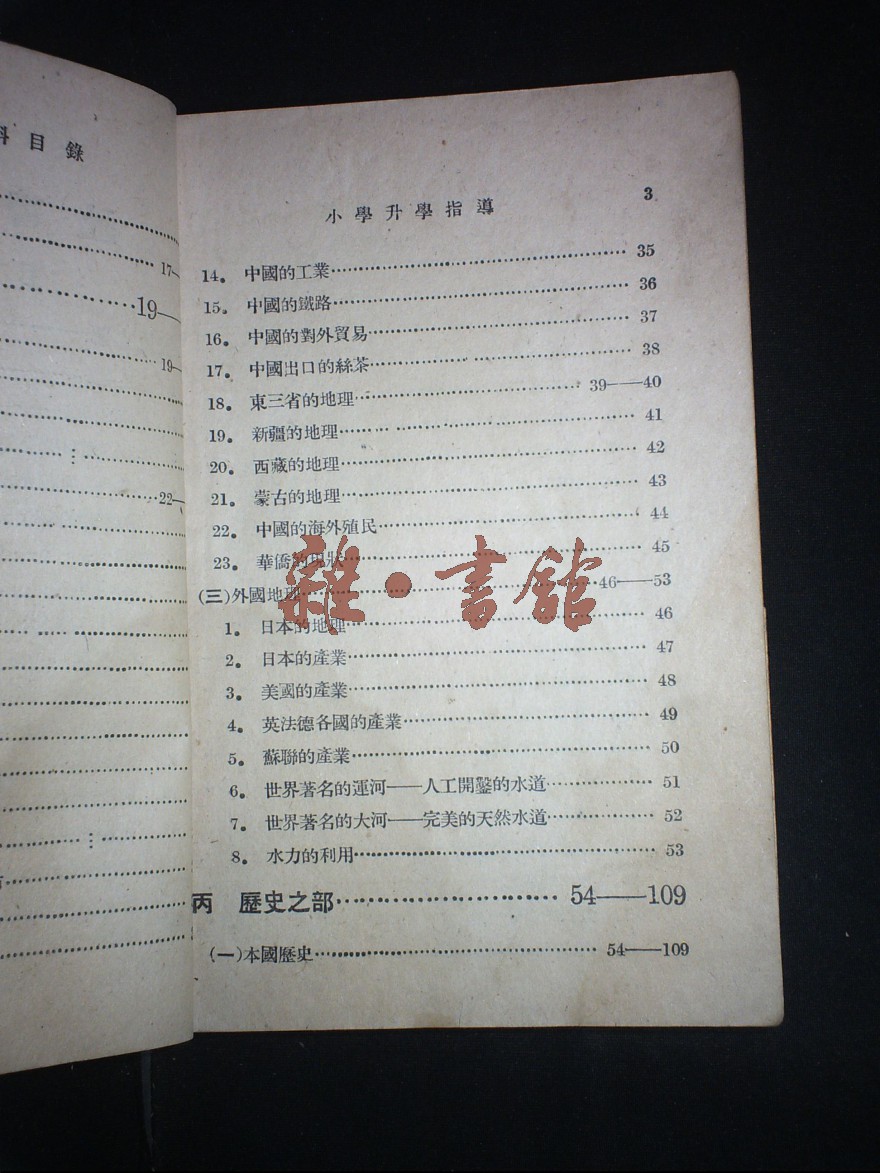 目錄
17—
19—
19—
22—
小學升學指導 3
14. 中國的工業 35
15. 中國的鐵路 36
16. 中國的對外貿易 37
17. 中國出口的絲茶 38
18. 東三省的地理 39——40
19. 新疆的地理 41
20. 西藏的地理 42
21. 蒙古的地理 43
22. 中國的海外殖民 44
23. 華僑的現狀 45
(三)外國地理 46——53
1. 日本的地理 46
2. 日本的產業 47
3. 美國的產業 48
4. 英法德各國的產業 49
5. 蘇聯的產業 50
6. 世界著名的運河——人工開鑿的水道 51
7. 世界著名的大河——完美的天然水道 52
8. 水力的利用 53
丙 歷史之部 54——109
(一)本國歷史 54——109
雜·書館